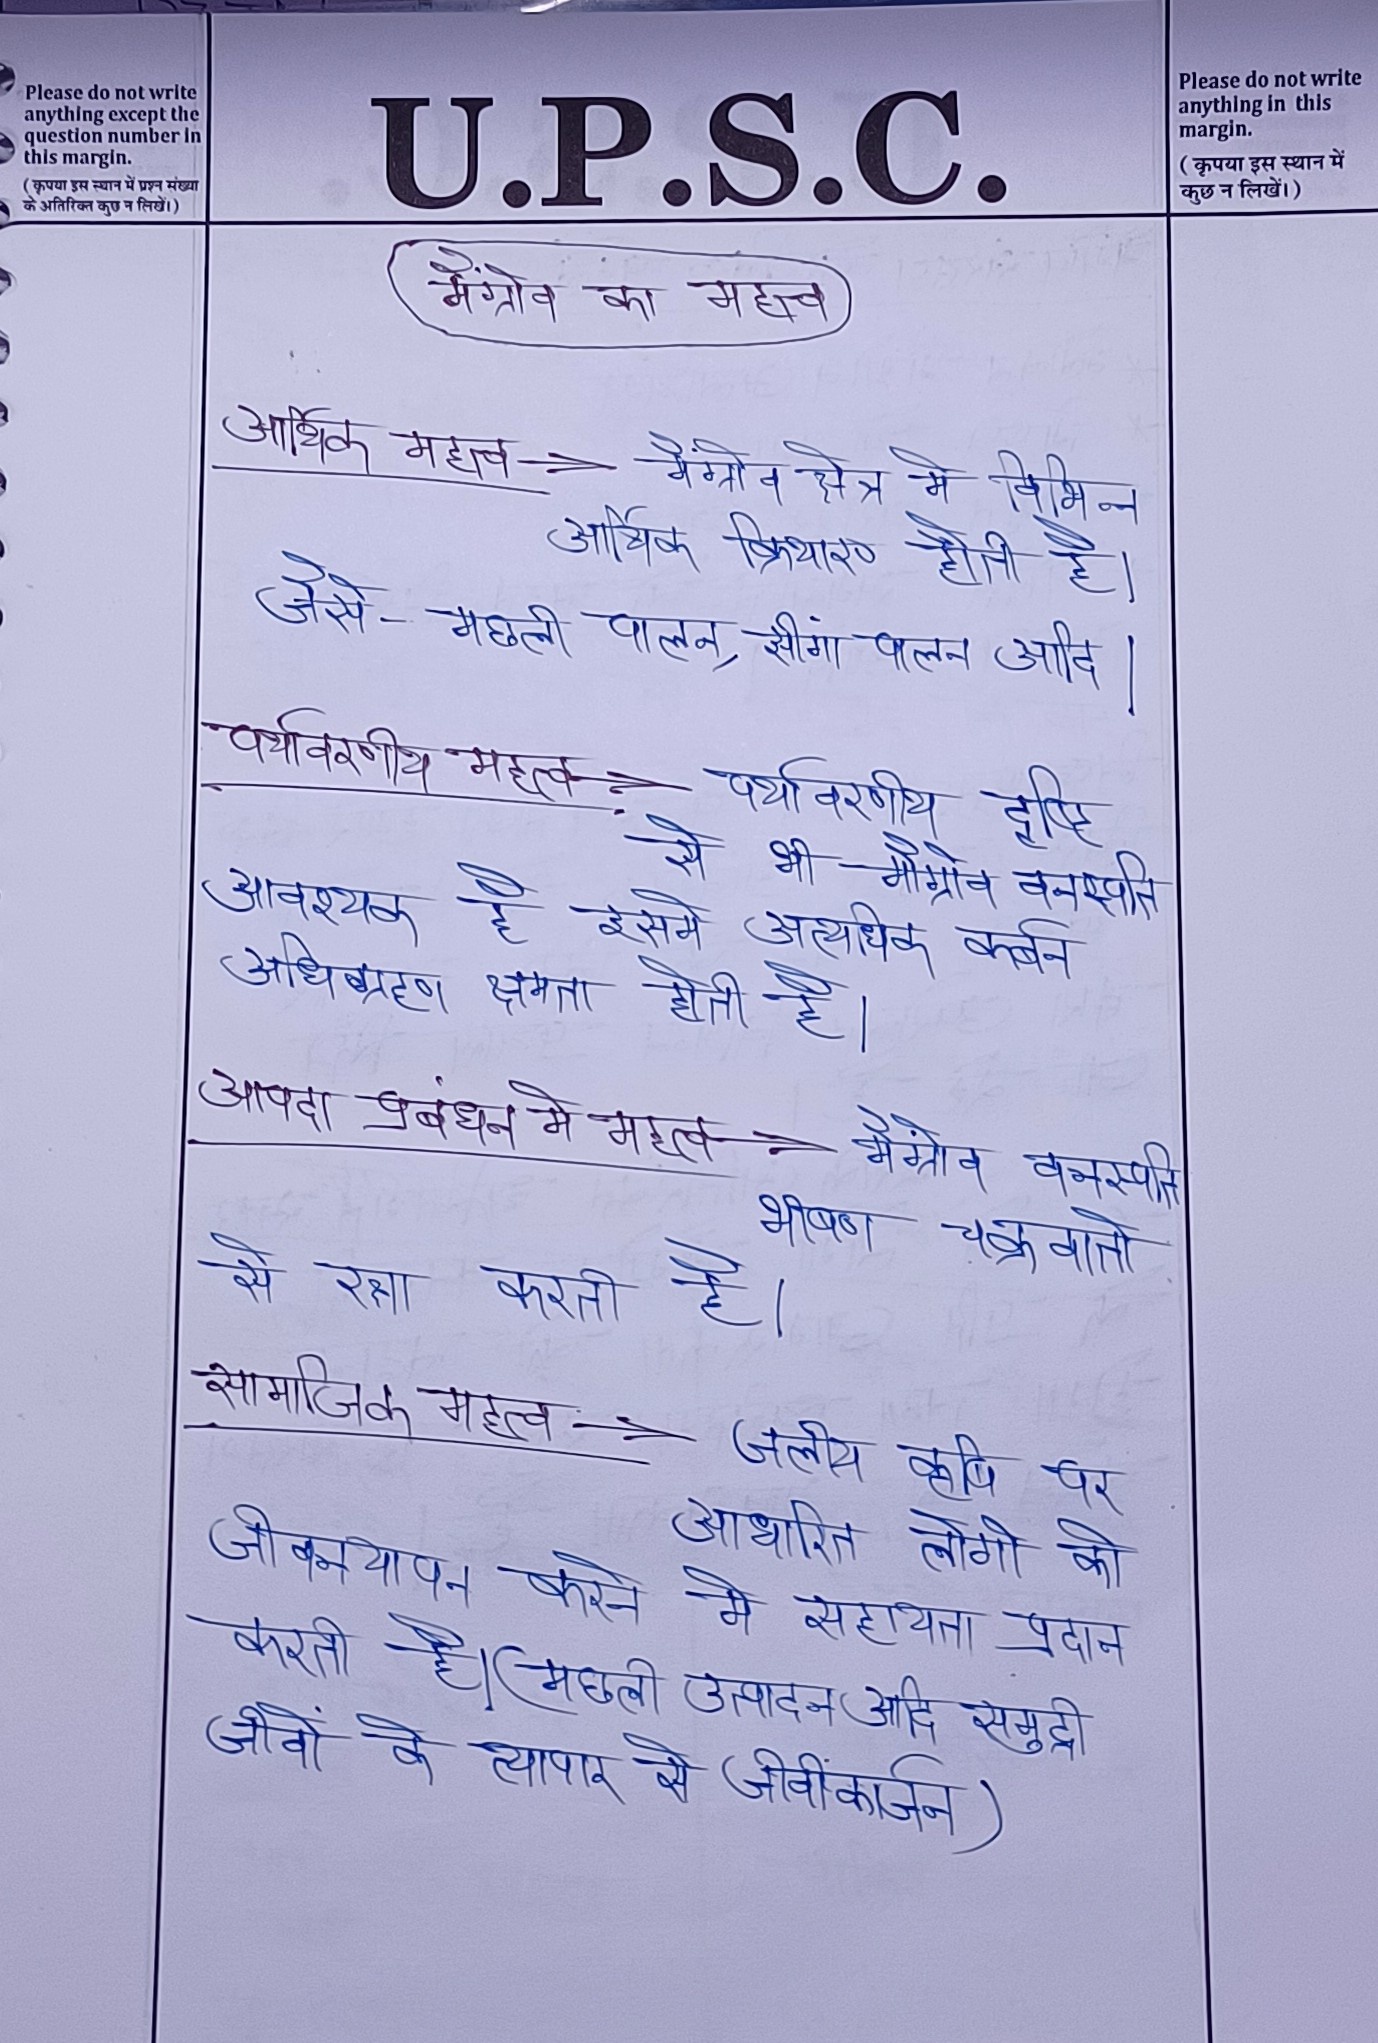 Please do not write
anything except the
question number in
this margin.
(कृपया इस स्थान में प्रश्न संख्या
के अतिरिक्त कुछ न लिखें।)
U.P.S.C.
Please do not write
anything in this
margin.
(कृपया इस स्थान में
कुछ न लिखें।)
मैंग्रोव का महत्त्व
आर्थिक महत्त्व → मैंग्रोव क्षेत्र मे विभिन्न
आर्थिक क्रियाएण होती है।
जैसे - मछली पालन, झींगा पालन आदि।
पर्यावरणीय महत्व → पर्यावरणीय दृष्टि
से भी मैंग्रोव वनस्पति
आवश्यक है इसमे अत्यधिक कार्बन
अधिग्रहण क्षमता होती है।
आपदा प्रबंधन मे महत्व → मैंग्रोव वनस्पति
भीषण चक्रवातो
से रक्षा करती है।
सामाजिक महत्व → जलीय कृषि पर
आधारित लोगो को
जीवनयापन करने मे सहायता प्रदान
करती है। (मछली उत्पादन आदि समुद्री
जीवों के व्यापार से जीवींकार्जन)